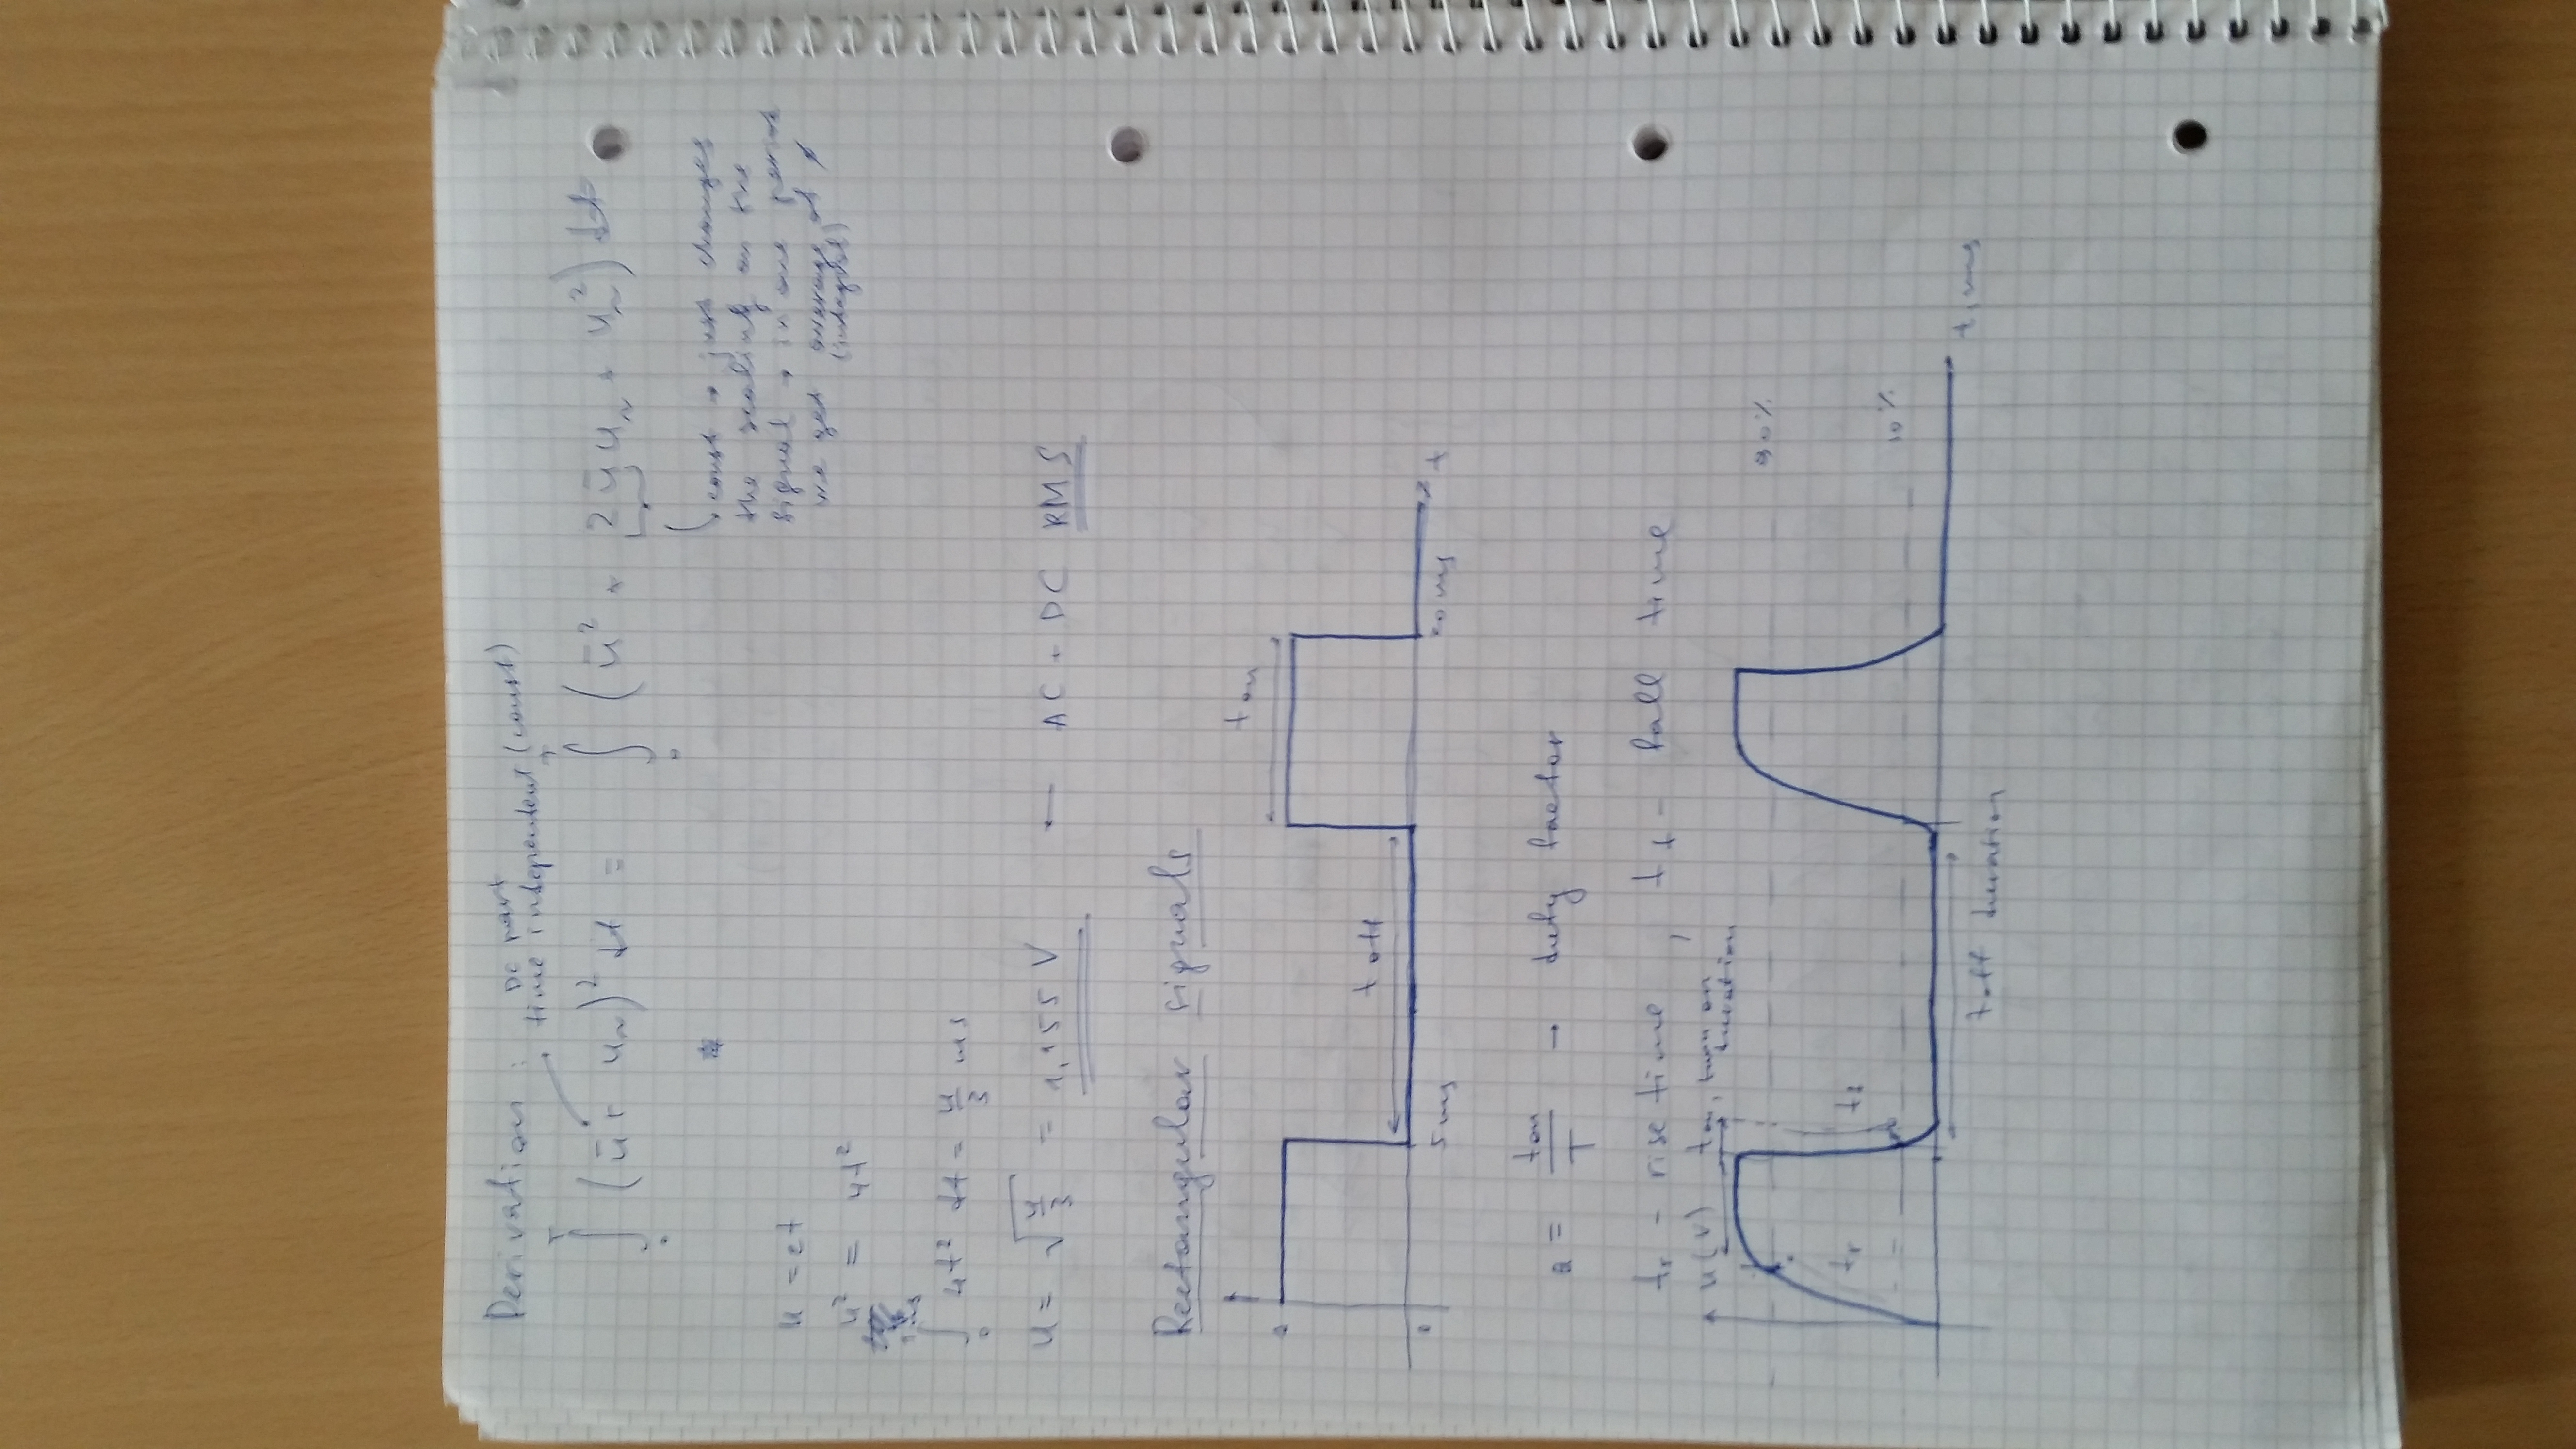 Derivation :
DC part
time independent (const)
∫₀ᵀ (ū + u~)² dt = ∫₀ᵀ (ū² + 2ūu~ + u~²) dt
const → just changes
the scaling on the
signal → in one period
we get average of
(integral)
u = 2t
u² = 4t²
∫ 4t² dt = 4/3 ms
u = √(4/3) = 1,155 V ← AC + DC RMS
Rectangular signals
t on
t off
0
5 ms
t
a = ton / T → duty factor
tr - rise time , tf - fall time
u(V) ton, turn on
duration
90%
tr
tf
10%
toff duration
t, ms